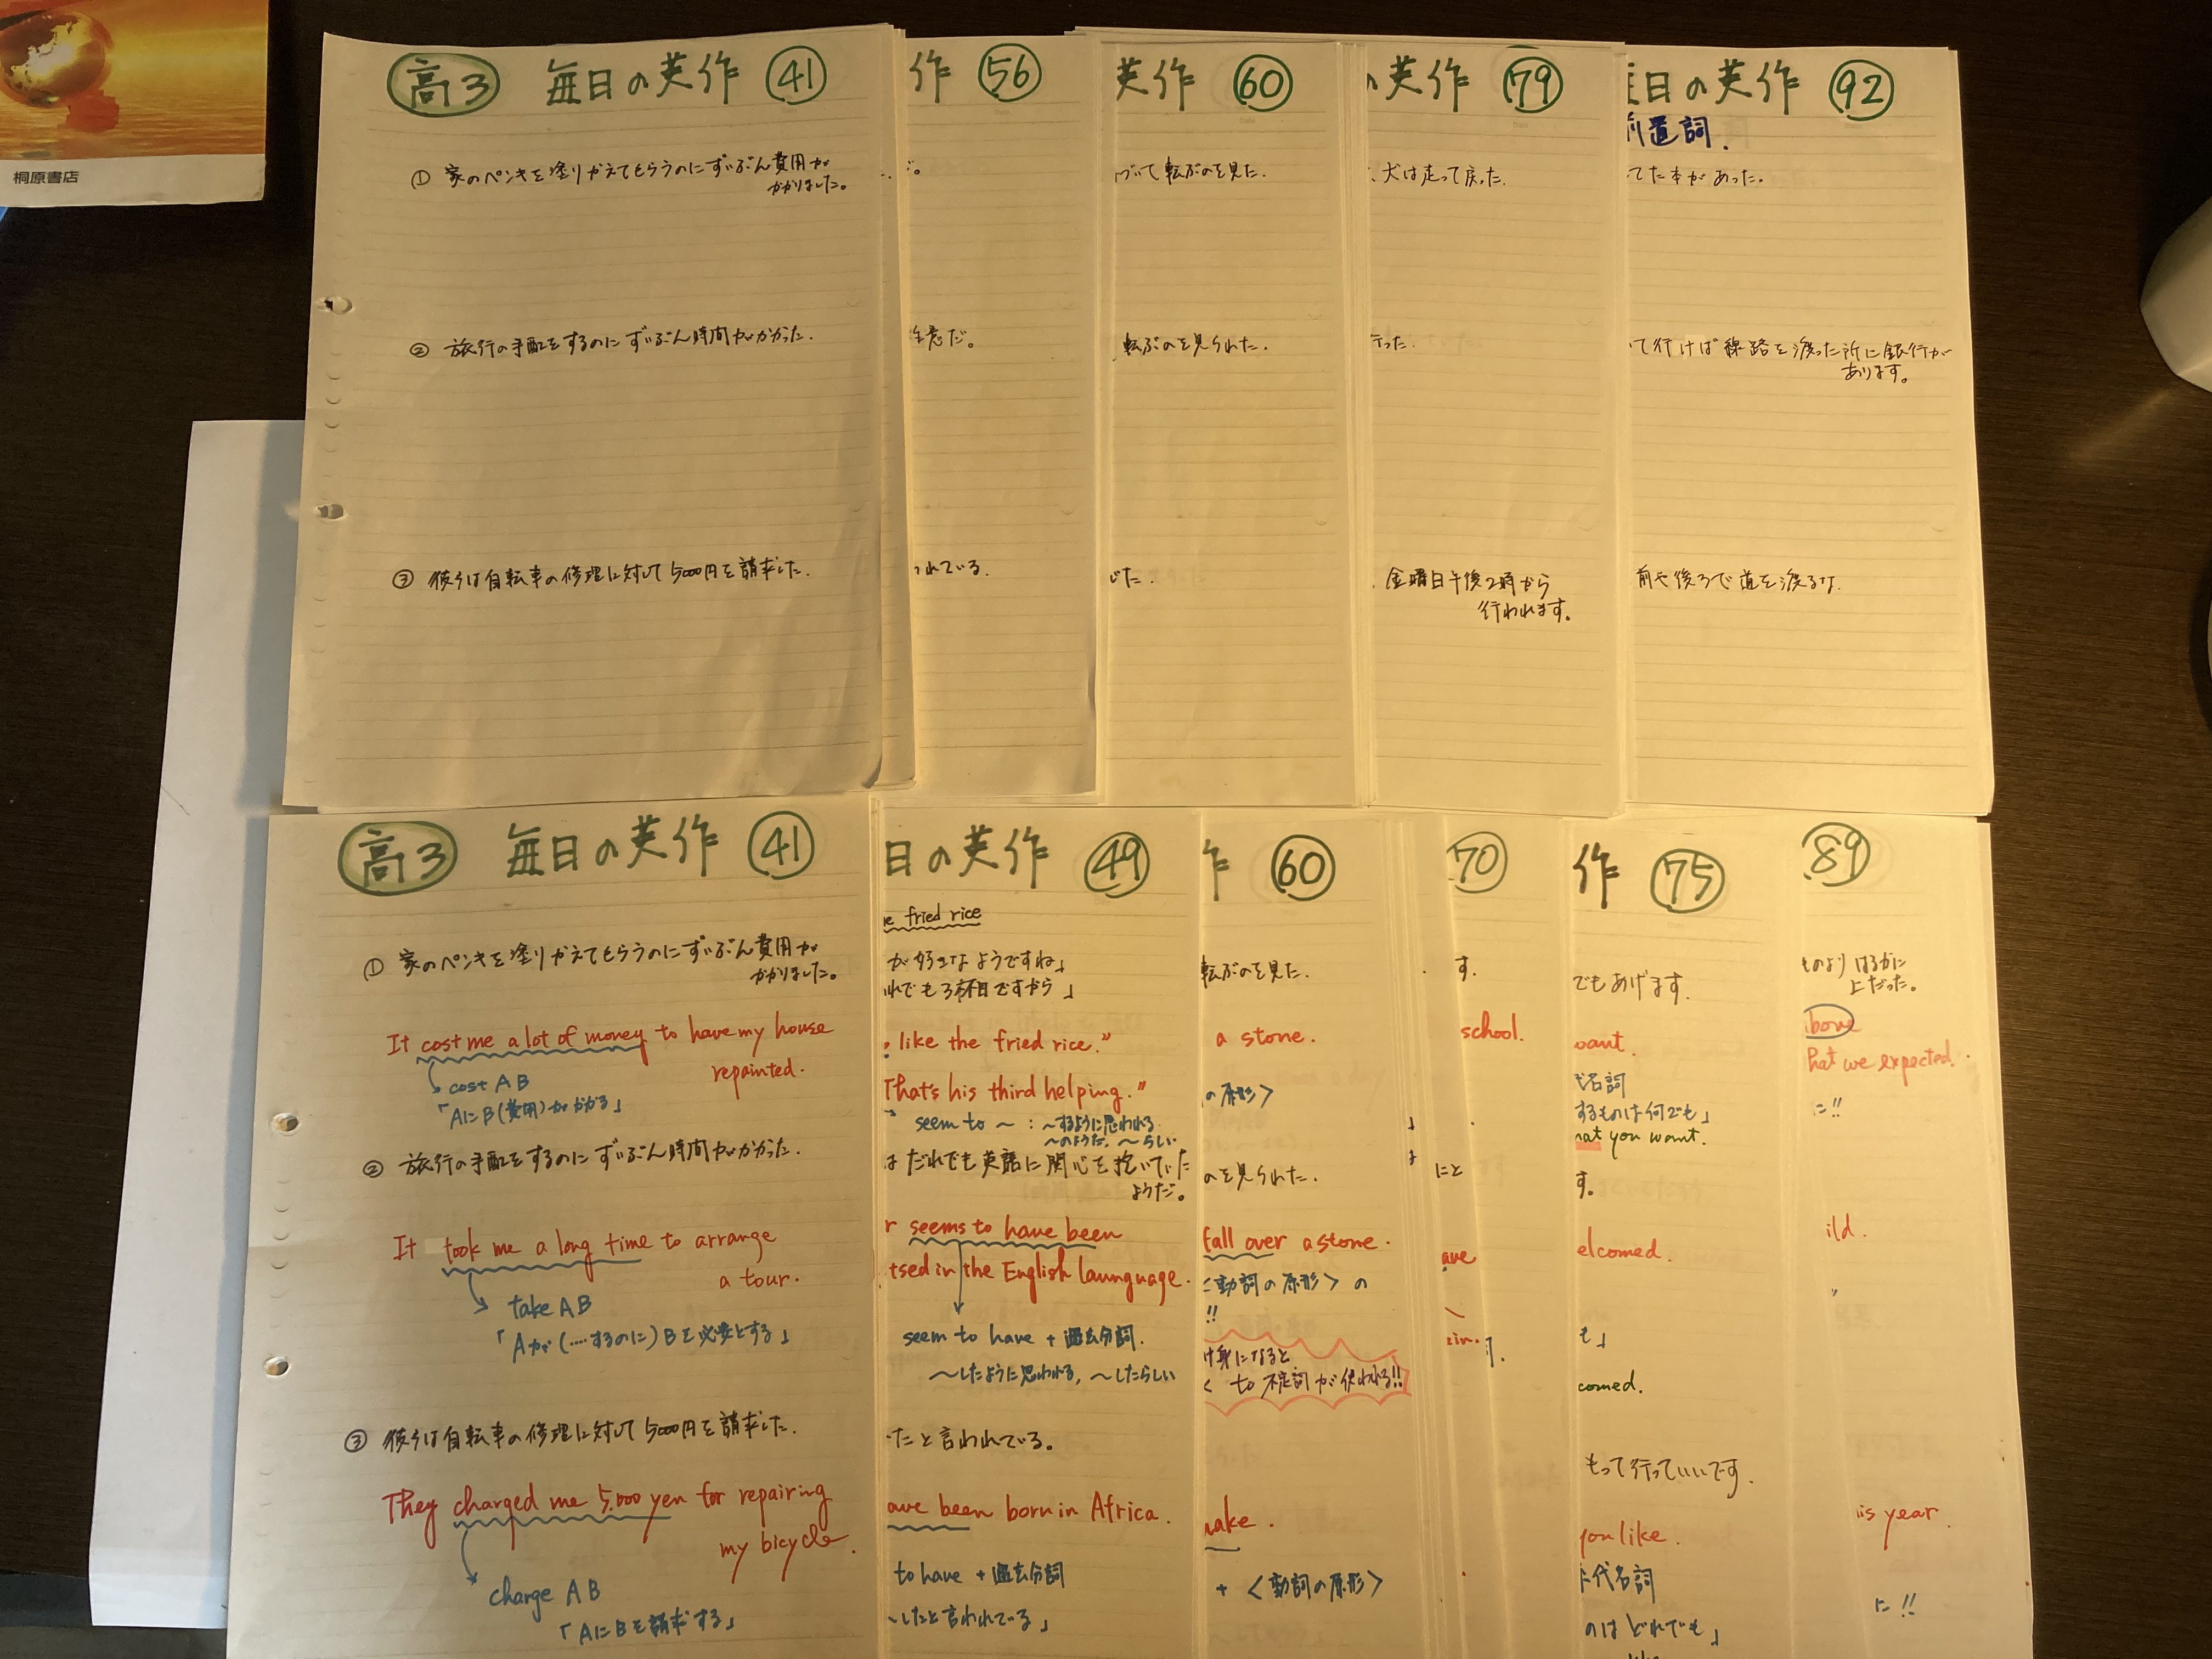 桐原書店
高3 毎日の英作 41
① 家のペンキを塗りかえてもらうのにずいぶん費用が
かかりました。
② 旅行の手配をするのにずいぶん時間がかかった.
③ 彼らは自転車の修理に対して5000円を請求した.
作 56
だ。
意だ。
れている.
英作 60
づいて転ぶのを見た.
転ぶのを見られた.
じた.
の英作 79
、犬は走って戻った.
行った.
金曜日午後2時から
行われます。
日の英作 92
前置詞.
てた本があった。
て行けば線路を渡った所に銀行が
あります。
前や後ろで道を渡るな.
高3 毎日の英作 41
① 家のペンキを塗りかえてもらうのにずいぶん費用が
かかりました。
It cost me a lot of money to have my house
repainted.
cost AB
「AにB(費用)がかかる」
② 旅行の手配をするのにずいぶん時間がかかった.
It took me a long time to arrange
a tour.
take AB
「Aが(....するのに)Bを必要とする」
③ 彼らは自転車の修理に対して5000円を請求した.
They charged me 5,000 yen for repairing
my bicycle.
charge AB
「AにBを請求する」
日の英作 49
fried rice
が好きなようですね」
れでも3杯目ですから」
like the fried rice."
That's his third helping."
seem to ~ : ~するように思われる
~のようだ. ~らしい.
はだれでも英語に関心を抱いていた
ようだ。
r seems to have been
tsed in the English launguage.
seem to have + 過去分詞.
~したように思われる, ~したらしい
たと言われている。
ave been born in Africa.
to have + 過去分詞
したと言われている」
作 60
転ぶのを見た.
a stone.
の原形>
のを見られた.
fall over a stone.
<動詞の原形> の
!!
け身になると
< to 不定詞が使われる!!
nake.
+ <動詞の原形>
70
す.
school.
にと
ave
作 75
でもあげます.
want.
代名詞
するものは何でも」
hat you want.
す.
elcomed.
も」
comed.
もって行っていいです.
you like.
代名詞
のはどれでも」
89
ものよりはるかに
上だった。
above
hat we expected.
に!!
ild.
is year.
に!!